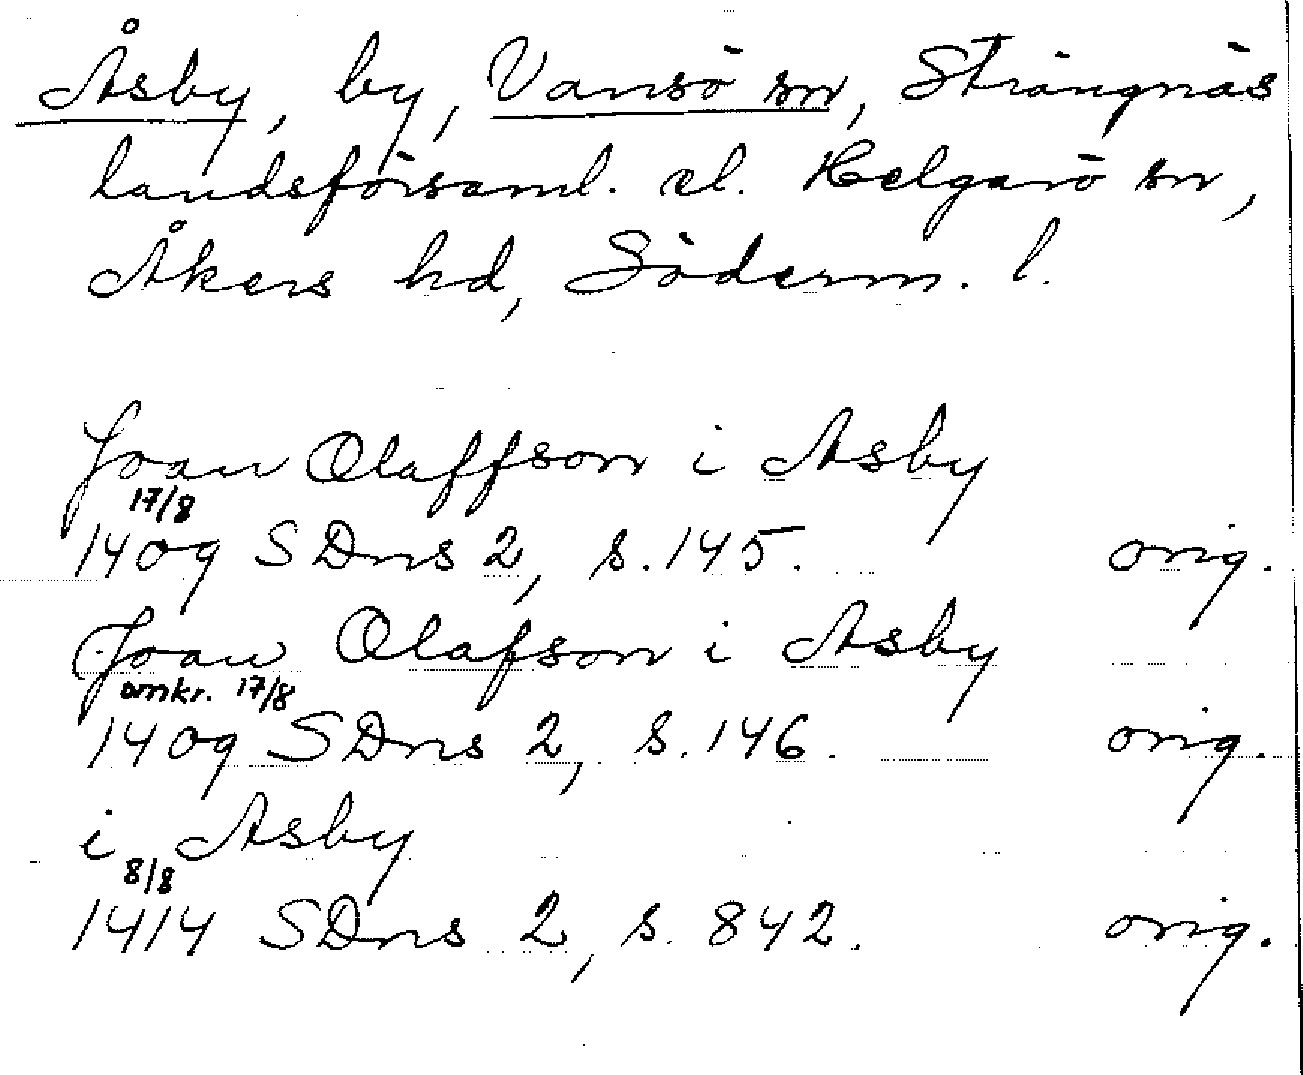 Åsby, by, Vansö sn, Strängnäs
landsförsaml. el. Helgarö sn,
Åkers hd, Söderm. l.
Joan Olaffson i Asby
17/8
1409 SDns 2, s. 145. orig.
Joan Olafson i Asby
omkr. 17/8
1409 SDns 2, s. 146. orig.
i Asby
8/8
1414 SDns 2, s. 842. orig.